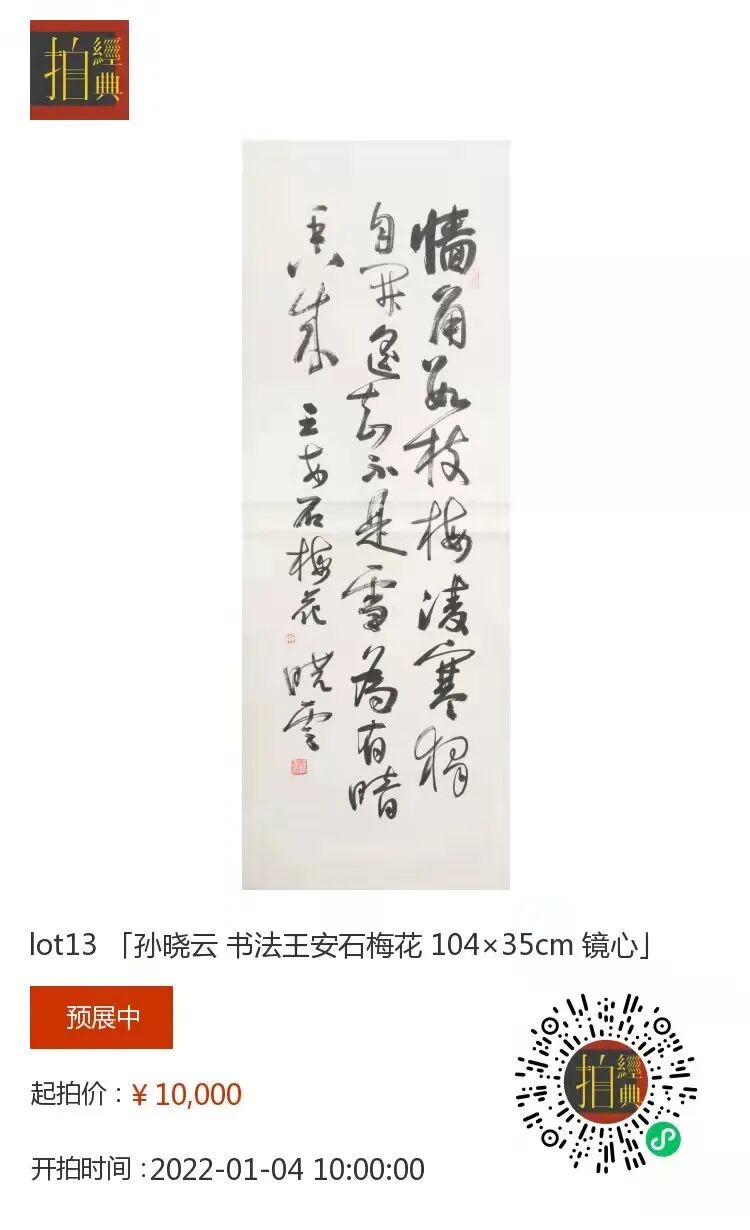 拍經典
墙角数枝梅凌寒独
自开遥知不是雪為有暗
香来
王安石梅花
晓雲
lot13 「孙晓云 书法王安石梅花 104×35cm 镜心」
预展中
起拍价：¥ 10,000
开拍时间：2022-01-04 10:00:00
拍經典